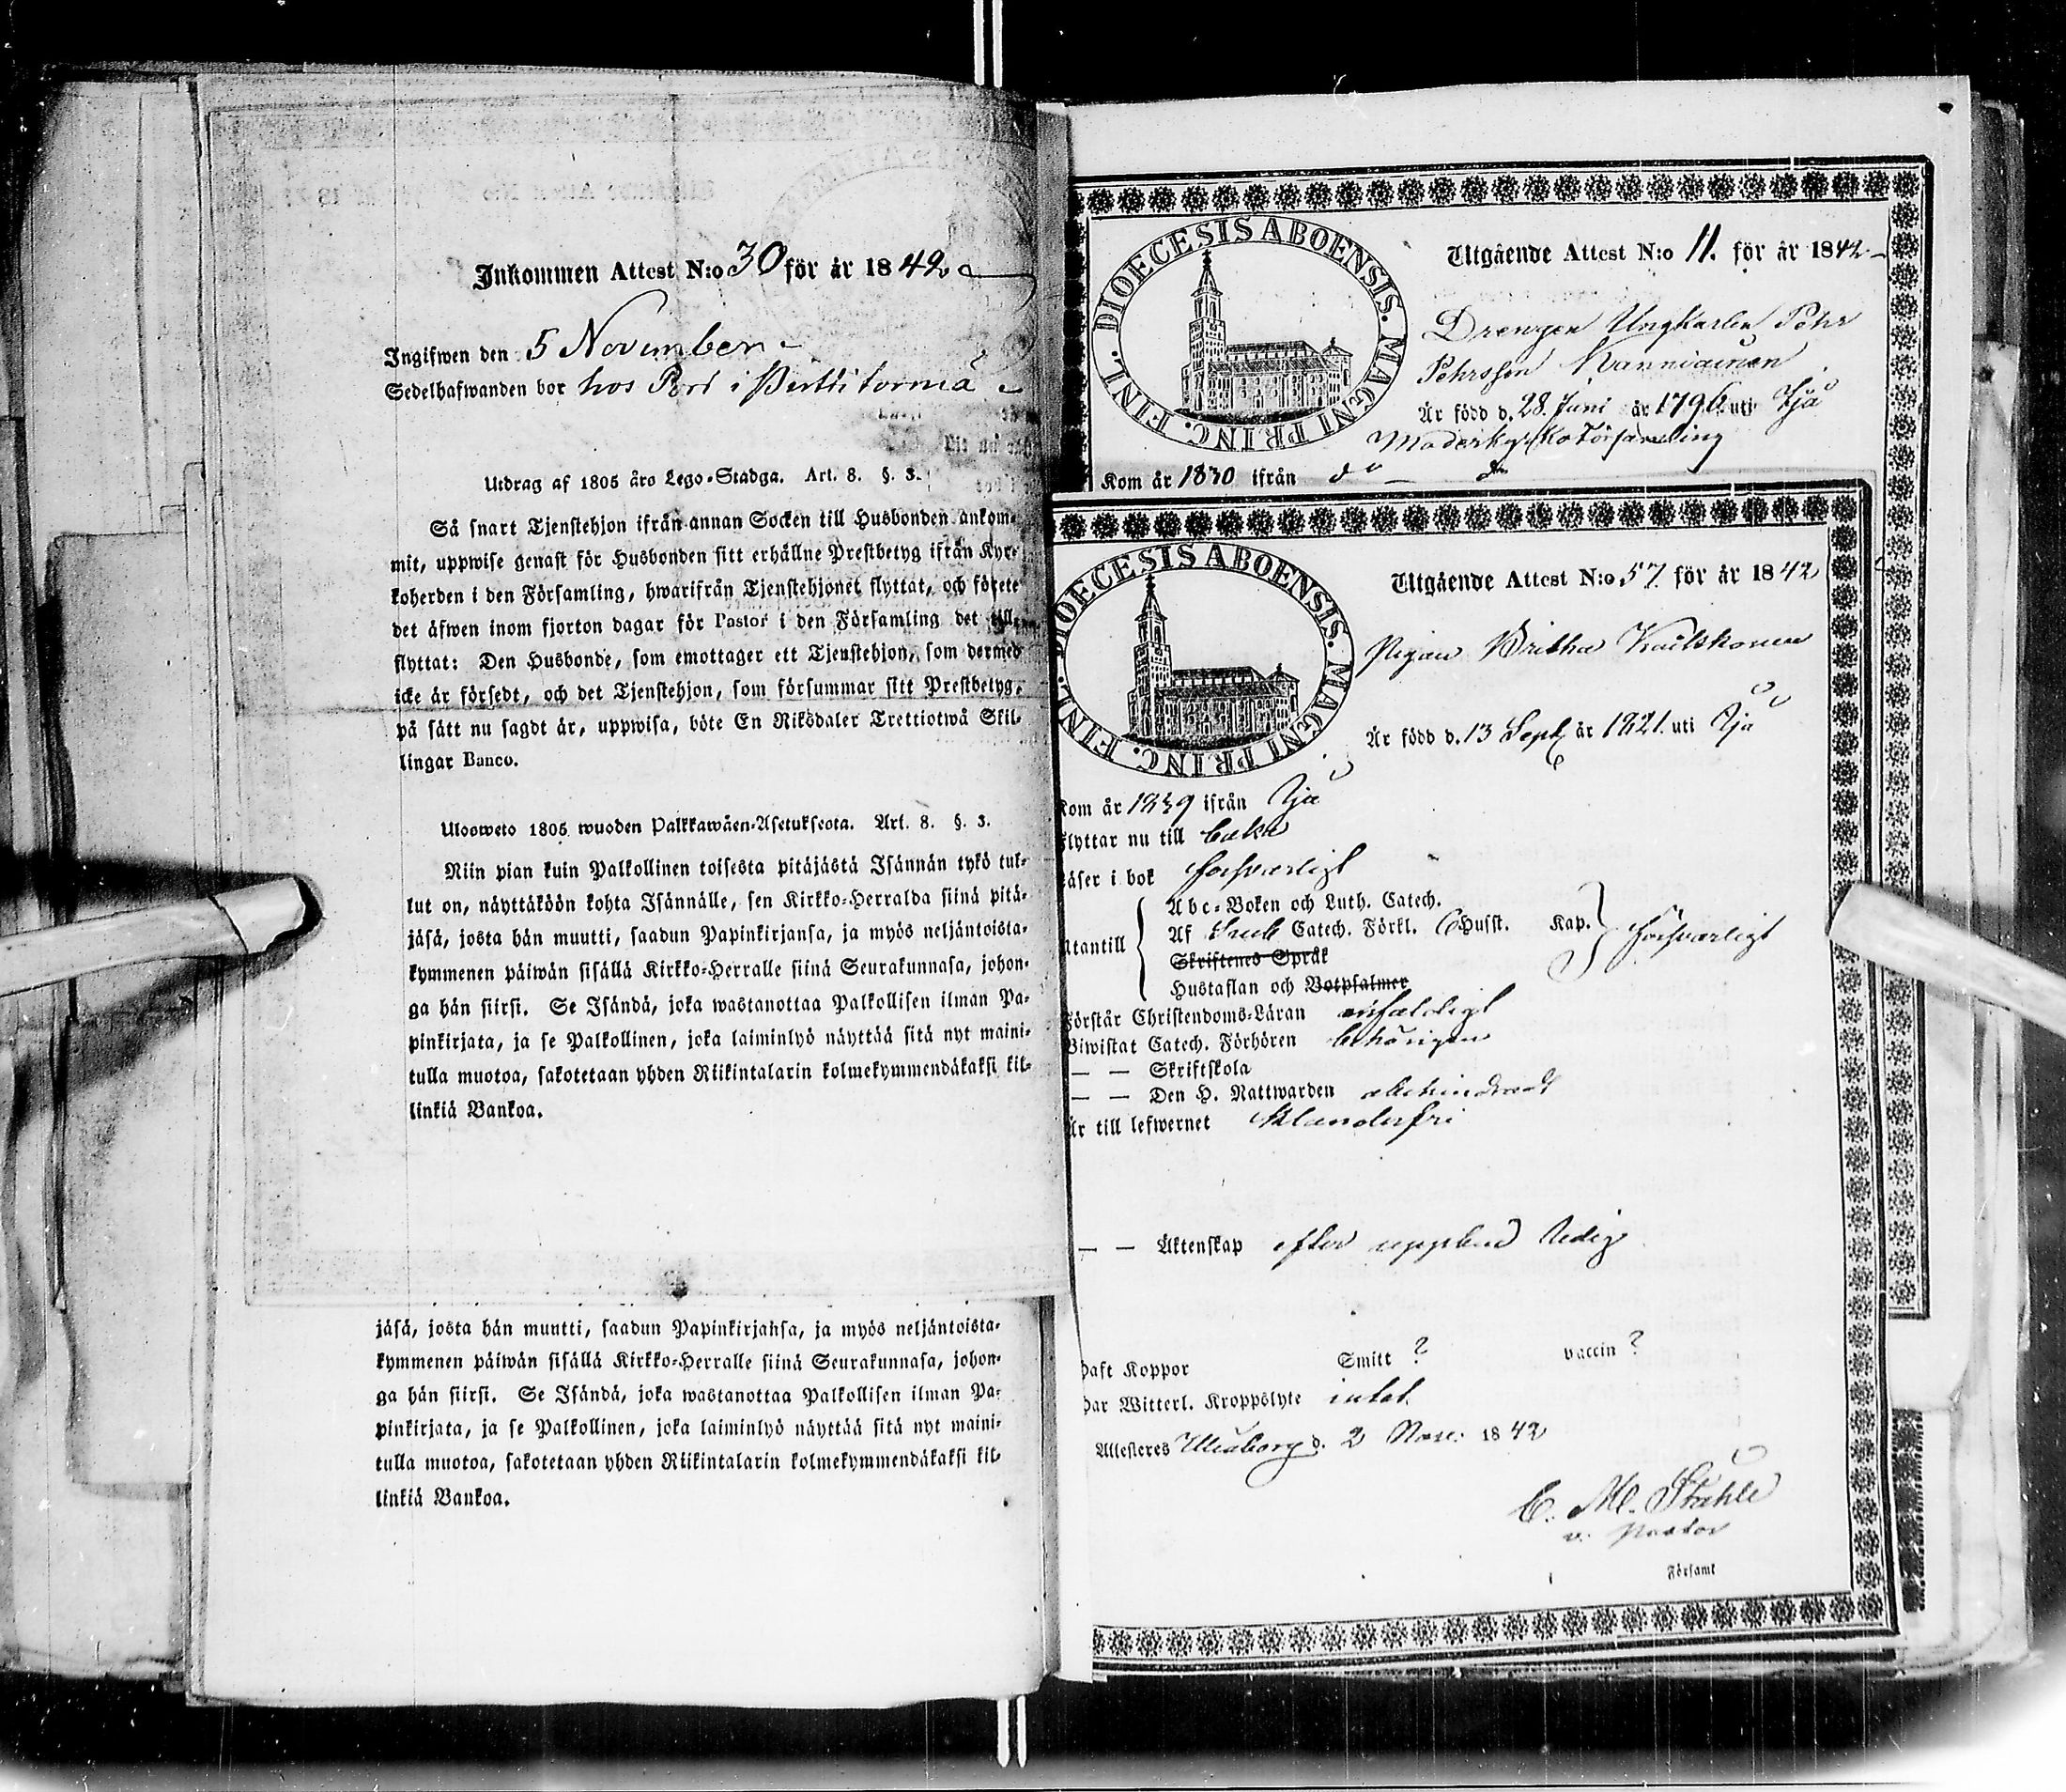 Inkommen Attest N:o 30 för år 1842
Ingifwen den 5 November
Sedelhafwanden bor hos Pert i Perttitörmä
Utdrag af 1805 års Lego-Stadga. Art. 8. §. 3.
Så snart Tjenstehjon ifrån annan Socken till Husbonden ankom-
mit, uppwise genast för Husbonden sitt erhållne Prestbetyg ifrån Kyr-
koherden i den Församling, hwarifrån Tjenstehjonet flyttat, och förete
det äfwen inom fjorton dagar för Pastor i den Församling det till
flyttat: Den Husbonde, som emottager ett Tjenstehjon, som dermed
icke är försedt, och det Tjenstehjon, som försummar sitt Prestbetyg,
på sätt nu sagdt är, uppwisa, böte En Riksdaler Trettiotwå Skil-
lingar Banco.
Ulosweto 1805 wuoden Palkkawäen-Asetuksesta. Art. 8. §. 3.
Niin pian kuin Palkollinen toisesta pitäjästä Isännän tykö tul-
lut on, näyttäköön kohta Isännälle, sen Kirkko-Herralda siinä pitä-
jäsä, josta hän muutti, saadun Papinkirjansa, ja myös neljäntoista-
kymmenen päiwän sisällä Kirkko-Herralle siinä Seurakunnasa, johon-
ga hän siirsi. Se Isändä, joka wastanottaa Palkollisen ilman Pa-
pinkirjata, ja se Palkollinen, joka laiminlyö näyttää sitä nyt maini-
tulla muotoa, sakotetaan yhden Riikintalarin kolmekymmendäkaksi kil-
linkiä Bankoa.
jäsä, josta hän muutti, saadun Papinkirjansa, ja myös neljäntoista-
kymmenen päiwän sisällä Kirkko-Herralle siinä Seurakunnasa, johon-
ga hän siirsi. Se Isändä, joka wastanottaa Palkollisen ilman Pa-
pinkirjata, ja se Palkollinen, joka laiminlyö näyttää sitä nyt maini-
tulla muotoa, sakotetaan yhden Riikintalarin kolmekymmendäkaksi kil-
linkiä Bankoa.
DIOECESIS ABOENSIS. MAGNI PRINC. FINL.
Utgående Attest N:o 11. för år 1842
Drengen Ungkarlen Pehr
Pehrsson Kanniainen
Är född d. 28. Juni år 1796. uti Ijo
Moderkyrko Församling
Kom år 1830 ifrån do do
DIOECESIS ABOENSIS. MAGNI PRINC. FINL.
Utgående Attest N:o 57 för år 1842
Pigan Britha
Är född d. 13 Sept år 1821. uti Ijo
Kom år 1839 ifrån Ijo
flyttar nu till
läser i bok försvarligt
Abc-Boken och Luth. Catech.
Utantill Af Catech. Förkl. Husst. Kap. försvarligt
Skriftenes Språk
Hustaflan och Botpsalmer
Förstår Christendoms-Läran enfaldigt
Biwistat Catech. Förhören behörigen
— — Skriftskola
— — Den H. Nattwarden obehindradt
Är till lefwernet klanderfri
— — Äktenskap efter uppbud ledig
haft Koppor Smitt ? vaccin ?
har Witterl. Kroppslyte intet
Attesteres Uleåborg d. 2 Nov: 1842
C. M. Ståhle
v. Pastor
Församl